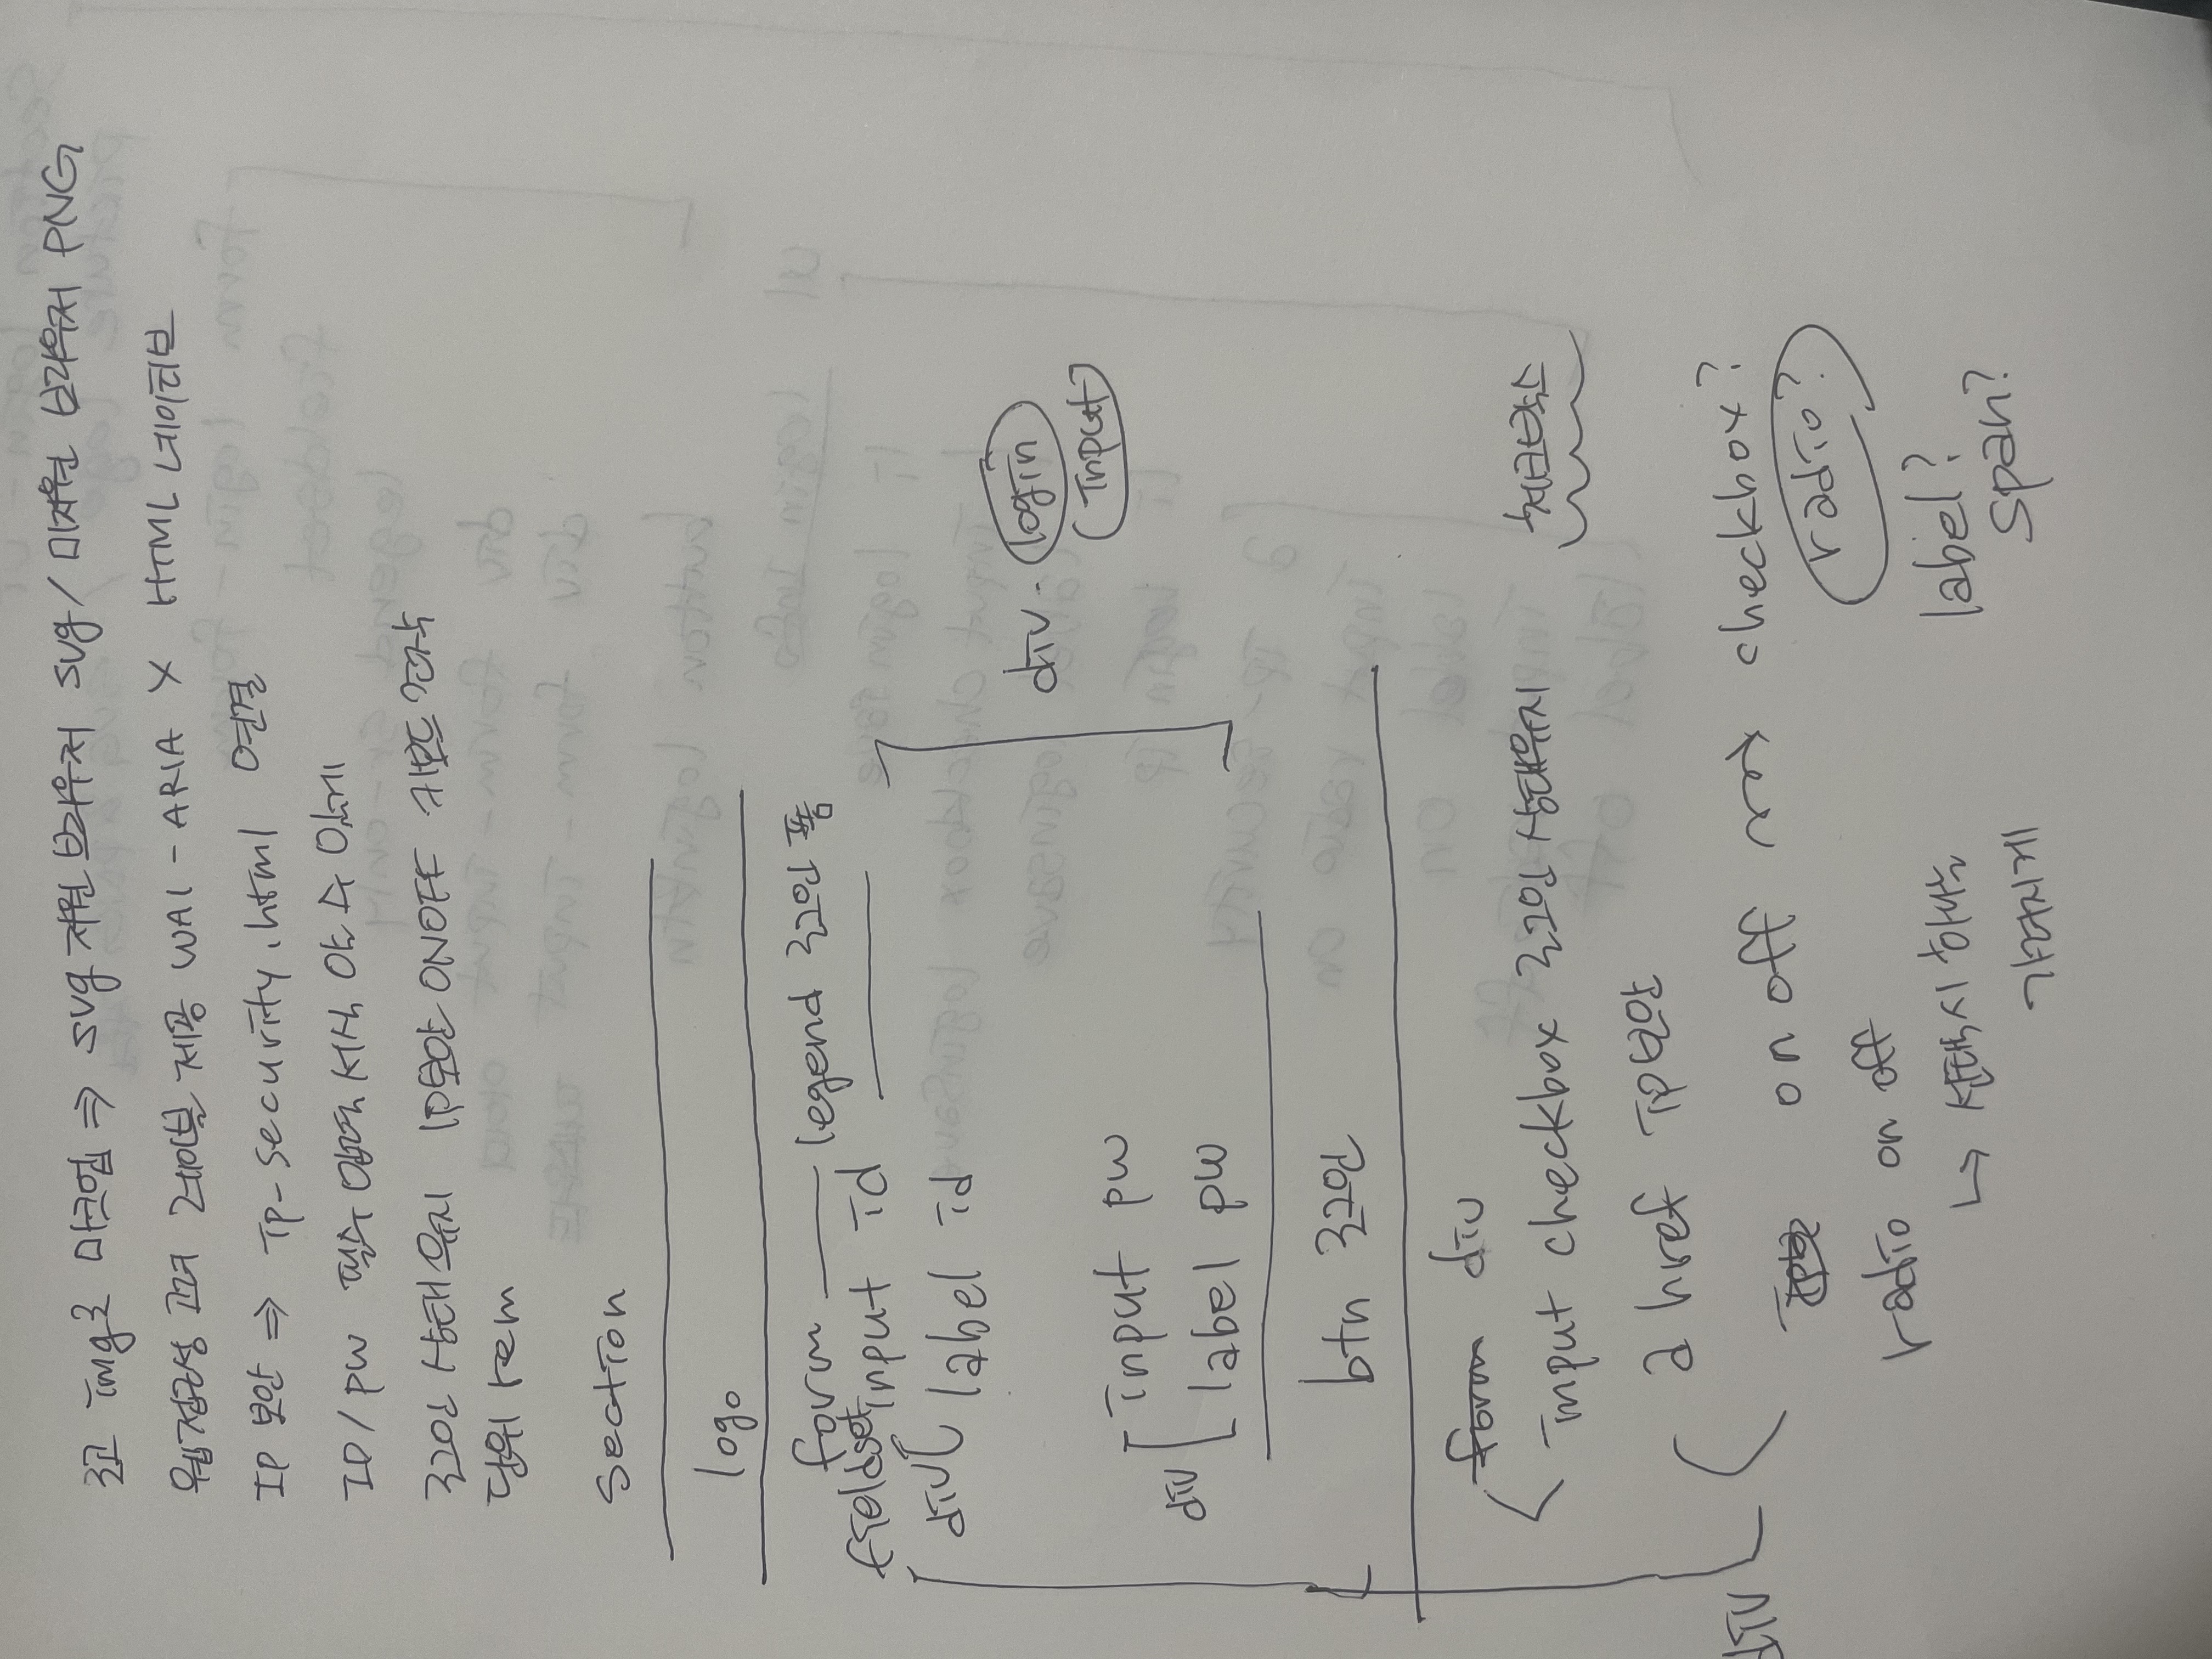 로고 img로 마크업 ⇒ svg 지원 브라우저 svg / 미지원 브라우저 PNG
웹접근성 고려 레이블 제공 WAI-ARIA X HTML 네이티브
IP 보안 ⇒ ip-security.html 연결
ID/pw 필수 입력 서식 알 수 있게
로그인 상태 유지 IP보안 ONOFF 키보드 조작
단위 rem
section
logo
form — legend 로그인 폼
fieldset input id
div label id
div - login
(input)
input pw
div
label pw
btn 로그인
form div
input checkbox 로그인 상태유지 체크박스
a href IP보안
div
on off → checkbox?
radio?
radio on off
↳ 선택시 하나는
가려지게
label?
span?